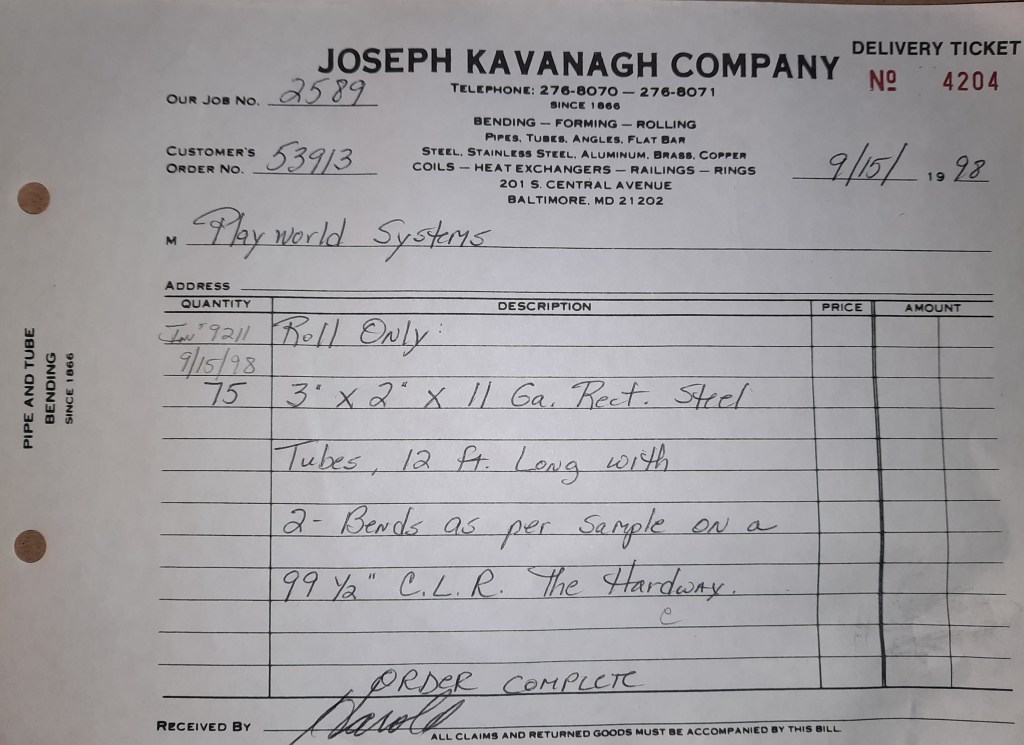 DELIVERY TICKET
JOSEPH KAVANAGH COMPANY
Nº 4204
OUR JOB NO. 2589
TELEPHONE: 276-8070 — 276-8071
SINCE 1866
BENDING — FORMING — ROLLING
PIPES, TUBES, ANGLES, FLAT BAR
CUSTOMER'S
ORDER NO. 53913
STEEL, STAINLESS STEEL, ALUMINUM, BRASS, COPPER
COILS — HEAT EXCHANGERS — RAILINGS — RINGS
201 S. CENTRAL AVENUE
BALTIMORE, MD 21202
9/15/ 19 98
M Playworld Systems
ADDRESS
QUANTITY DESCRIPTION PRICE AMOUNT
Inv # 9211 Roll Only:
9/15/98
75 3" X 2" X 11 Ga. Rect. Steel
Tubes, 12 ft. Long with
2- Bends as per Sample on a
99 1/2" C.L.R. The Hardway.
e
ORDER COMPLETE
RECEIVED BY Harold
ALL CLAIMS AND RETURNED GOODS MUST BE ACCOMPANIED BY THIS BILL
PIPE AND TUBE
BENDING
SINCE 1866